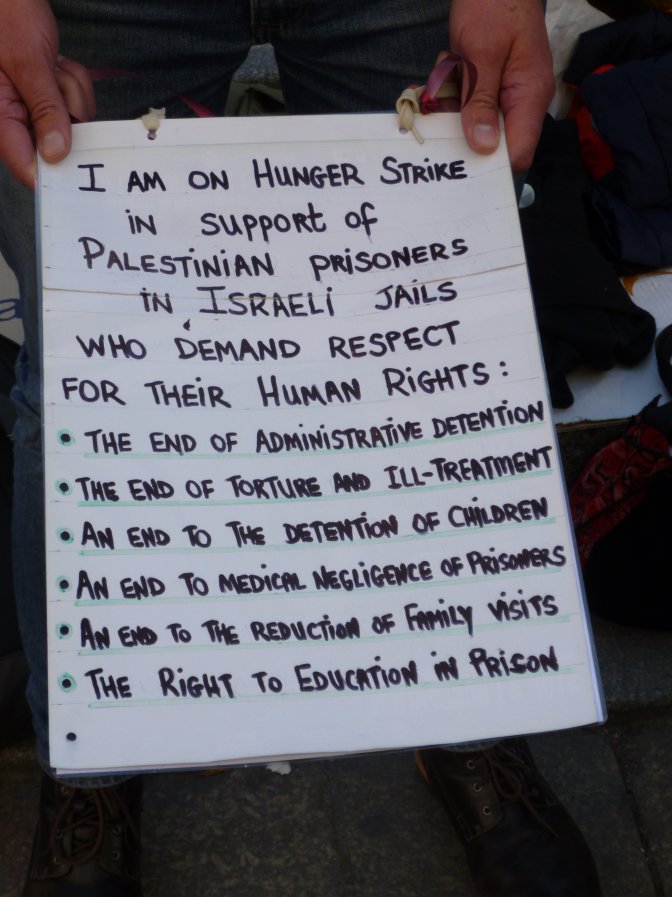 I AM ON HUNGER STRIKE
IN SUPPORT OF
PALESTINIAN PRISONERS
IN ISRAELI JAILS
WHO DEMAND RESPECT
FOR THEIR HUMAN RIGHTS:
• THE END OF ADMINISTRATIVE DETENTION
• THE END OF TORTURE AND ILL-TREATMENT
• AN END TO THE DETENTION OF CHILDREN
• AN END TO MEDICAL NEGLIGENCE OF PRISONERS
• AN END TO THE REDUCTION OF FAMILY VISITS
• THE RIGHT TO EDUCATION IN PRISON
•